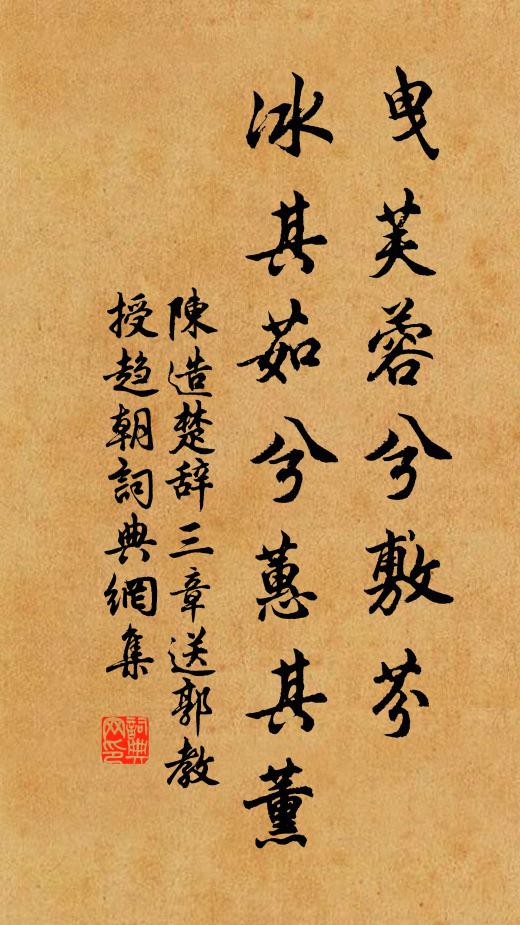 曳芙蓉兮敷芬
冰其茹兮蕙其薰
陳造楚辞三章送郭教
授趋朝詞典網集
詞典網印